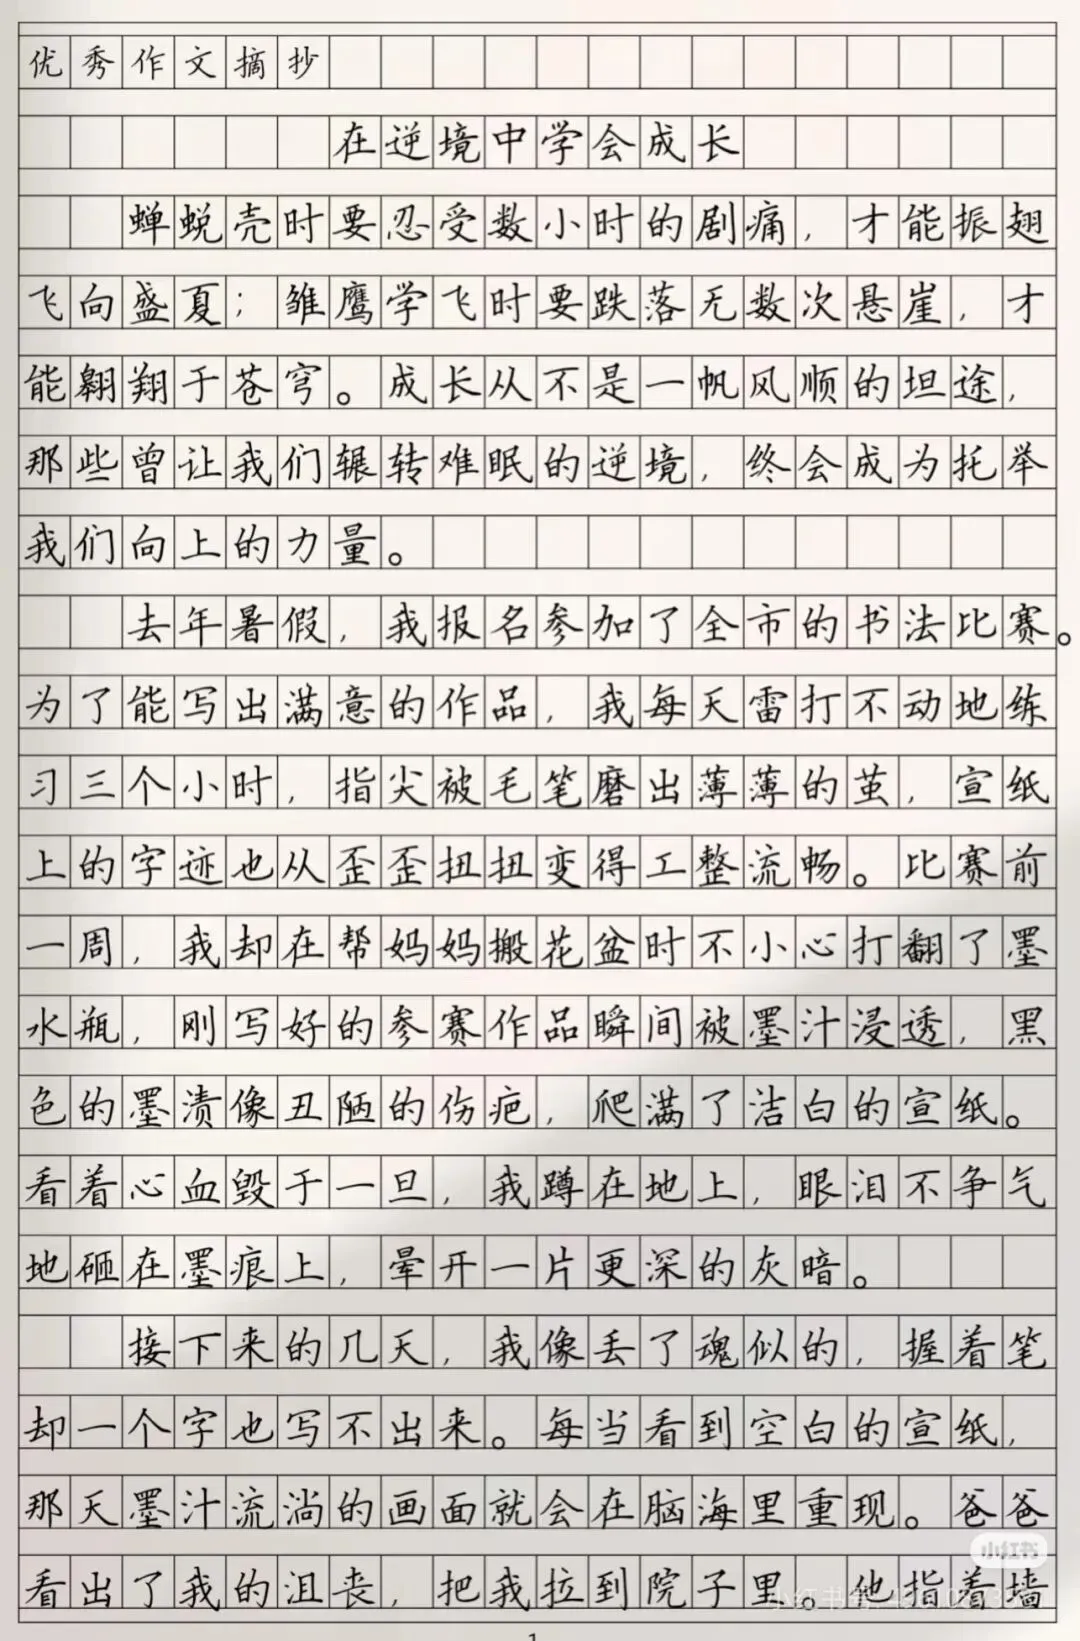 优秀作文摘抄
在逆境中学会成长
蝉蜕壳时要忍受数小时的剧痛，才能振翅
飞向盛夏；雏鹰学飞时要跌落无数次悬崖，才
能翱翔于苍穹。成长从不是一帆风顺的坦途，
那些曾让我们辗转难眠的逆境，终会成为托举
我们向上的力量。
去年暑假，我报名参加了全市的书法比赛。
为了能写出满意的作品，我每天雷打不动地练
习三个小时，指尖被毛笔磨出薄薄的茧，宣纸
上的字迹也从歪歪扭扭变得工整流畅。比赛前
一周，我却在帮妈妈搬花盆时不小心打翻了墨
水瓶，刚写好的参赛作品瞬间被墨汁浸透，黑
色的墨渍像丑陋的伤疤，爬满了洁白的宣纸。
看着心血毁于一旦，我蹲在地上，眼泪不争气
地砸在墨痕上，晕开一片更深的灰暗。
接下来的几天，我像丢了魂似的，握着笔
却一个字也写不出来。每当看到空白的宣纸，
那天墨汁流淌的画面就会在脑海里重现。爸爸
看出了我的沮丧，把我拉到院子里。他指着墙
小红书
1